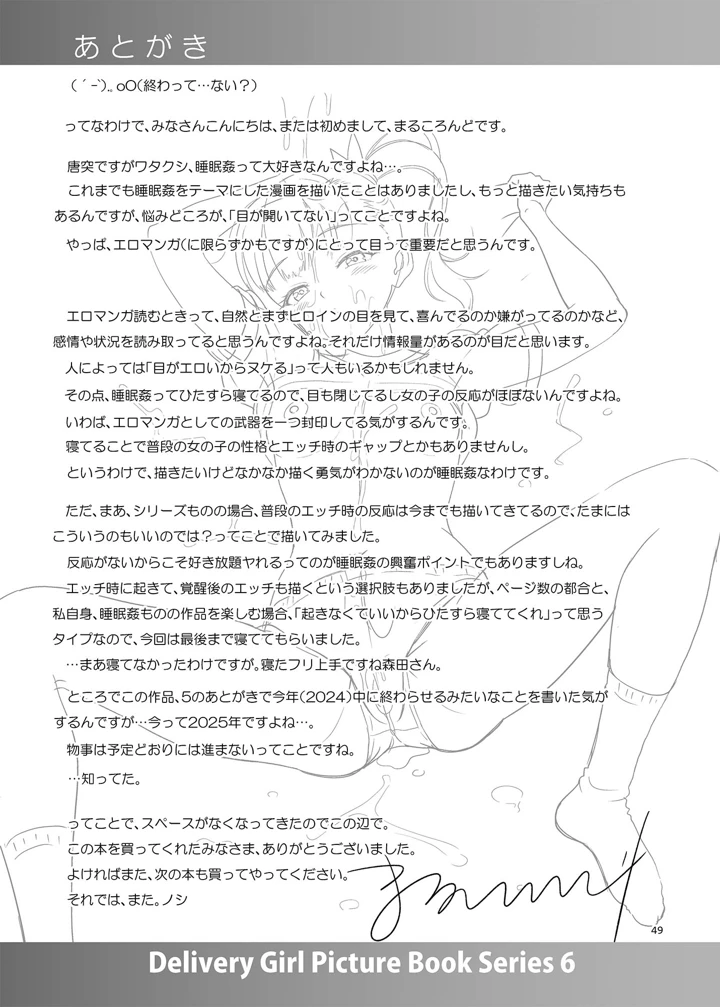 あとがき
(´-`).。oO(終わって…ない？)
ってなわけで、みなさんこんにちは、または初めまして、まるころんどです。
唐突ですがワタクシ、睡眠姦って大好きなんですよね…。
これまでも睡眠姦をテーマにした漫画を描いたことはありましたし、もっと描きたい気持ちも
あるんですが、悩みどころが、「目が開いてない」ってことですよね。
やっぱ、エロマンガ(に限らずかもですが)にとって目って重要だと思うんです。
エロマンガ読むときって、自然とまずヒロインの目を見て、喜んでるのか嫌がってるのかなど、
感情や状況を読み取ってると思うんですよね。それだけ情報量があるのが目だと思います。
人によっては「目がエロいからヌケる」って人もいるかもしれません。
その点、睡眠姦ってひたすら寝てるので、目も閉じてるし女の子の反応がほぼないんですよね。
いわば、エロマンガとしての武器を一つ封印してる気がするんです。
寝てることで普段の女の子の性格とエッチ時のギャップとかもありませんし。
というわけで、描きたいけどなかなか描く勇気がわかないのが睡眠姦なわけです。
ただ、まあ、シリーズものの場合、普段のエッチ時の反応は今までも描いてきてるので、たまには
こういうのもいいのでは？ってことで描いてみました。
反応がないからこそ好き放題ヤれるってのが睡眠姦の興奮ポイントでもありますしね。
エッチ時に起きて、覚醒後のエッチも描くという選択肢もありましたが、ページ数の都合と、
私自身、睡眠姦ものの作品を楽しむ場合、「起きなくていいからひたすら寝ててくれ」って思う
タイプなので、今回は最後まで寝ててもらいました。
…まあ寝てなかったわけですが。寝たフリ上手ですね森田さん。
ところでこの作品、5のあとがきで今年(2024)中に終わらせるみたいなことを書いた気が
するんですが…今って2025年ですよね…。
物事は予定どおりには進まないってことですね。
…知ってた。
ってことで、スペースがなくなってきたのでこの辺で。
この本を買ってくれたみなさま、ありがとうございました。
よければまた、次の本も買ってやってください。
それでは、また。ノシ
49
Delivery Girl Picture Book Series 6